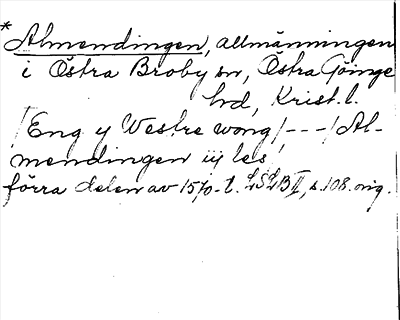 * Almendingen, allmänningen
i Östra Broby sn, Östra Göinge
hd, Krist. l.
/Eng y Westre wong/---/Al-
mendingen iij les/
förra delen av 1570-t. LSLB II, s. 108. orig.